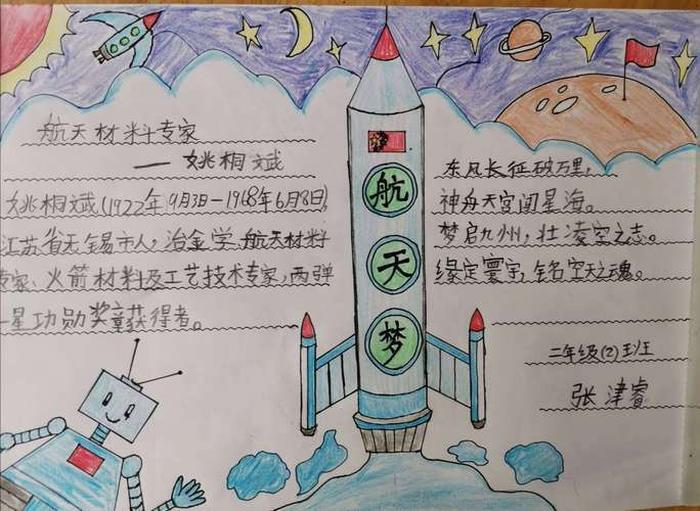 航天材料专家
——姚桐斌
姚桐斌(1922年9月3日—1968年6月8日),
江苏省无锡市人,冶金学、航天材料
专家、火箭材料及工艺技术专家,两弹
一星功勋奖章获得者。
航
天
梦
东风长征破万里,
神舟天宫闯星海。
梦启九州,壮凌空之志。
缘定寰宇,铭空天之魂。
二年级(2)班
张津睿